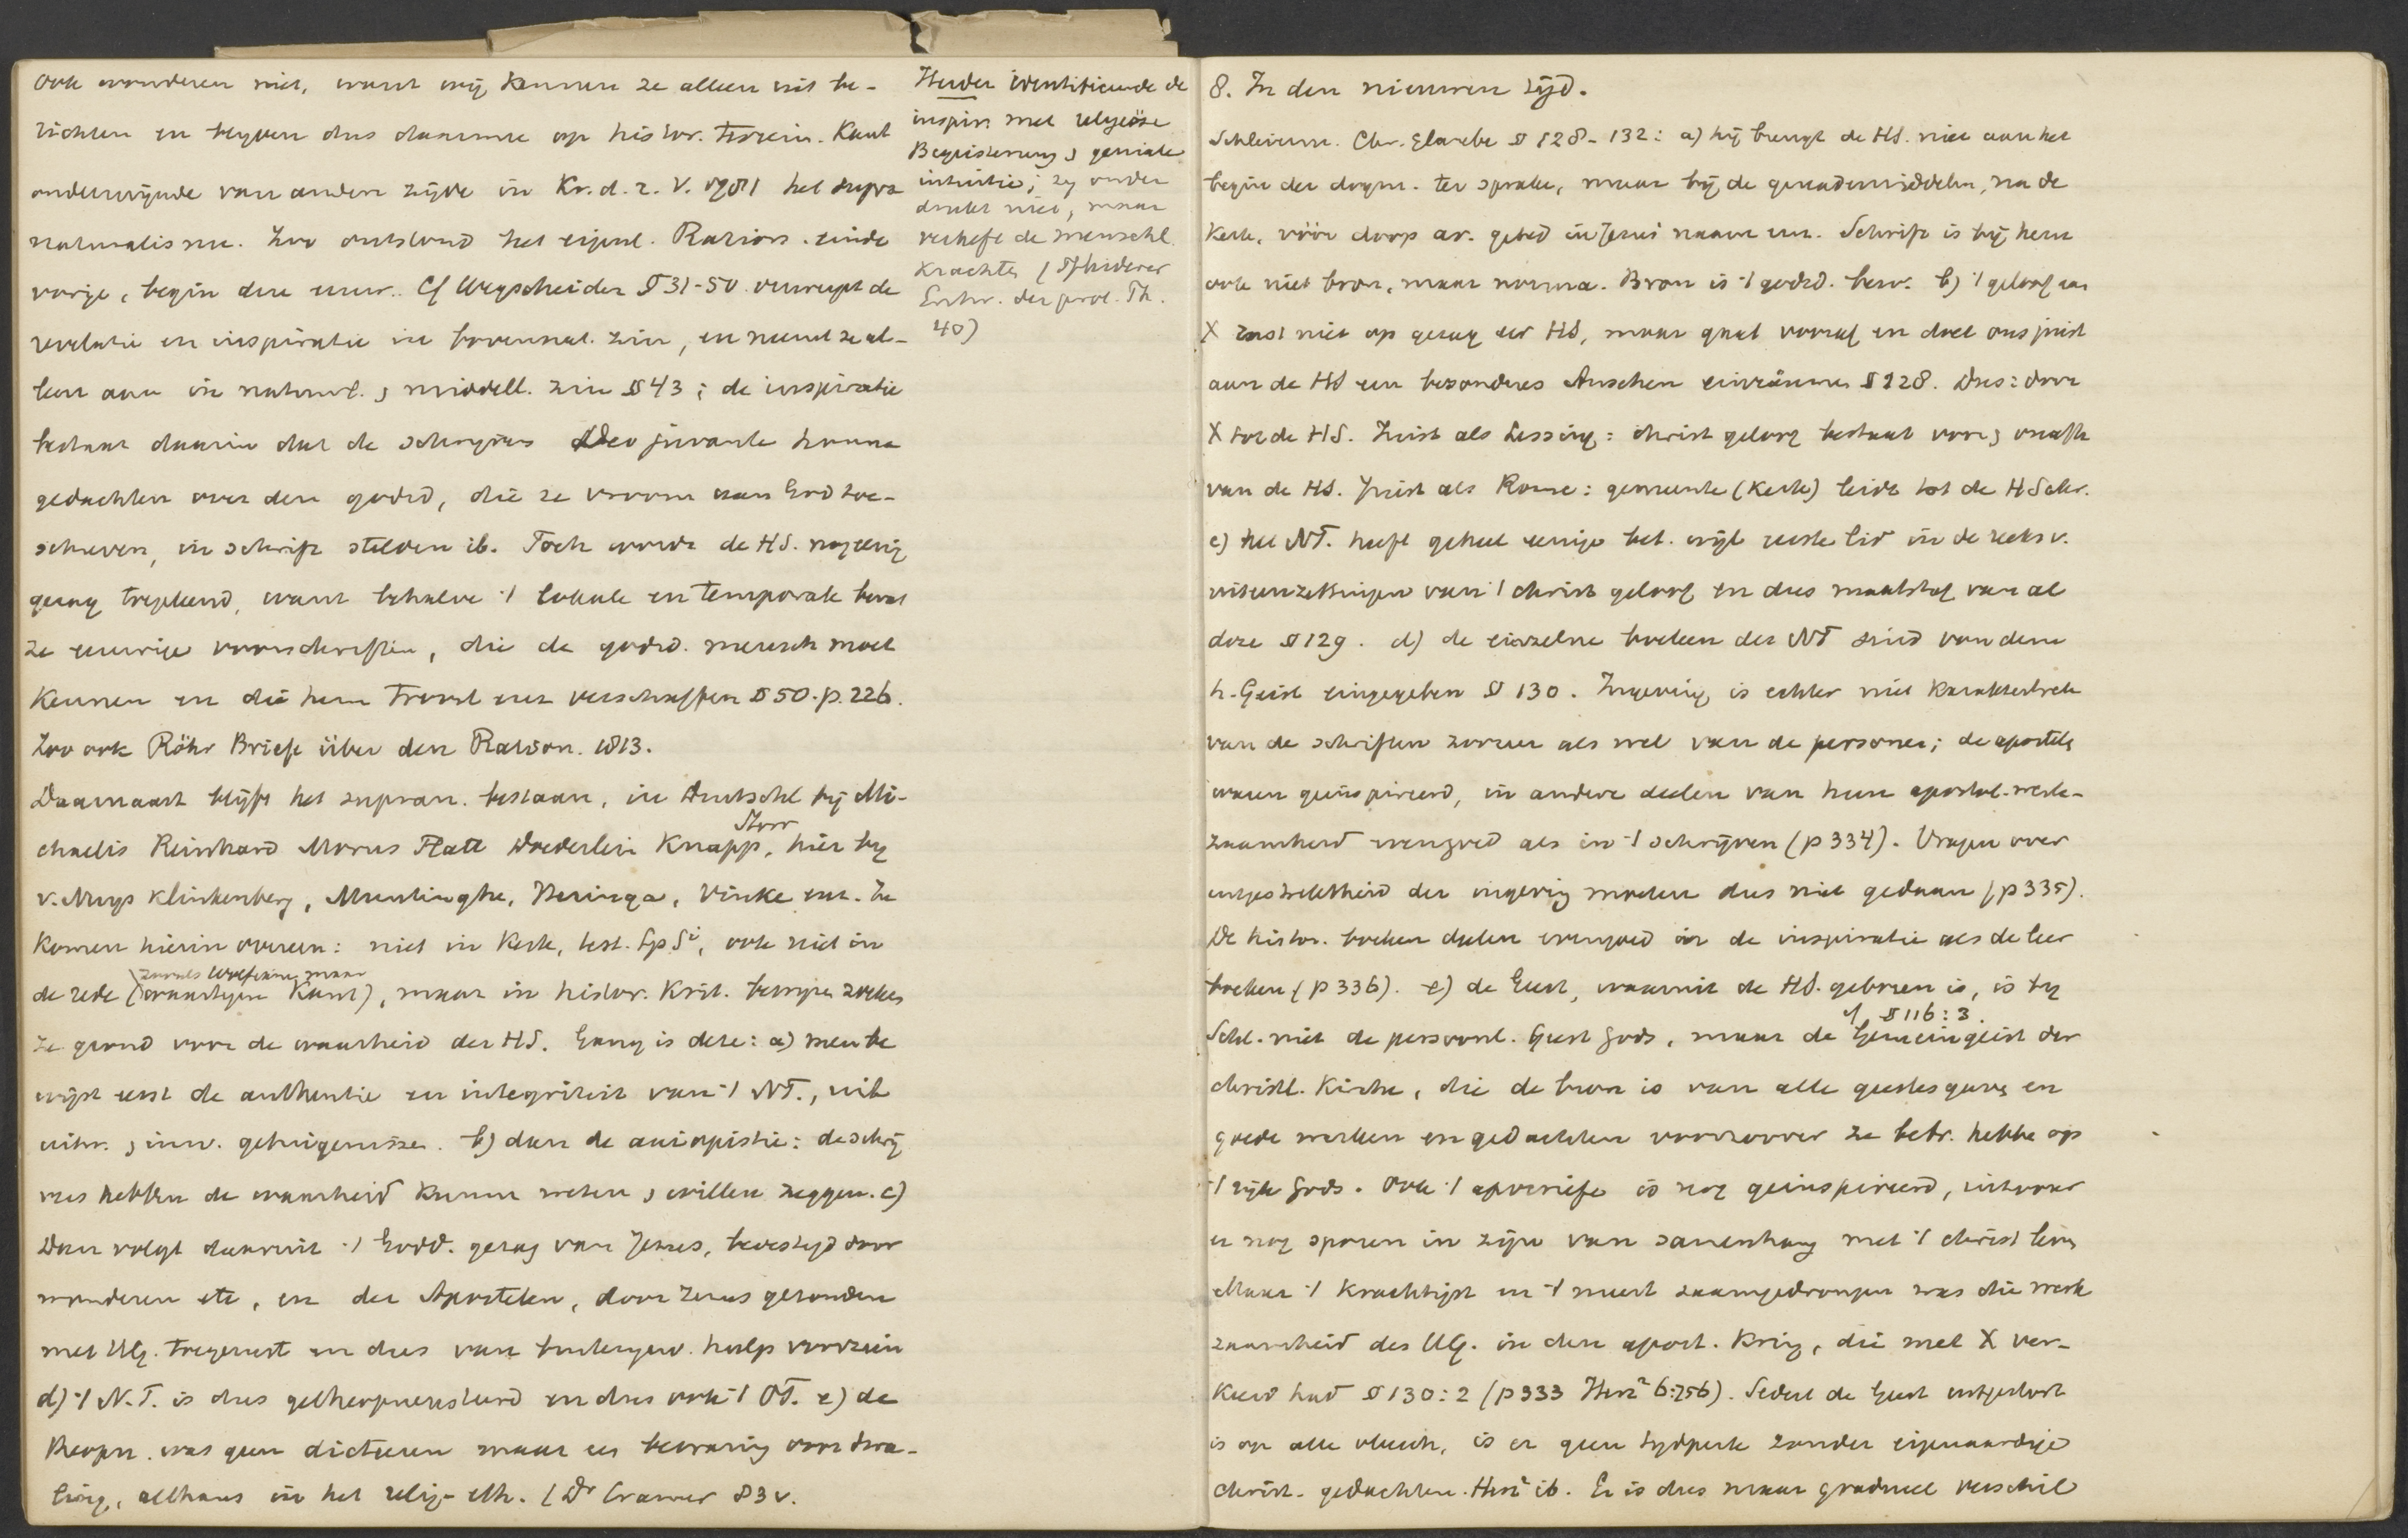 ook wonderen niet, want wij kennen ze alleen uit be-
richten en blyven dus daarmee op histor. terrein. Kant
ondermijnde van andere zijde in Kr. d. r. V. 1781 het supra
naturalisme. Zoo ontstond het eigenl. Ration. einde
vorige, begin dezer eeuw. Cf Wegscheider § 31-50 verwerpt de
revelatie en inspiratie in bovennat. zin, en neemt ze al-
leen aan in natuurl. , middell. zin § 43; de inspiratie
bestaat daarin dat de schryvers Deo juvante hunne
gedachten over den godsd, die ze vroom aan God toe-
schreven, in schrift stelden ib. Toch wordt de HS. nog eenig
gezag toegekend, want behalve 't lokale en temporale bevat
ze eeuwige voorschriften, die de godsd. mensch moet
kennen en die hem troost enz verschaffen § 50. p. 226.
Zoo ook Röhr Briefe über den Ration. 1813.
Daarnaast blijft het supran. bestaan, in Duitschl bij Mi-
chaelis Reinhard Morus Flatt Doederlein Knapp, Storr hier by
v. Nuys Klinkenberg, Muntinghe, Heringa, Vinke enz. Ze
komen hierin overeen: niet in kerk, test. Sp Si, ook niet in
de rede (zooals Wolfianen, maar Kant), maar in histor. krit. bewijzen zoeken
ze grond voor de waarheid der HS. Gang is deze: a) men be
wijst eerst de authentie en integriteit van 't NT., uit
uitw. , inw. getuigenissen. b) dan de axiopistie: de schrij
vers hebben de waarheid kunnen weten , willen zeggen. c)
Dan volgt daaruit 't Godd. gezag van Jezus, bevestigd door
wonderen etc, en der Apostelen, door Jezus gezonden
met HG. toegerust en dus van buitengew. hulp voorzien
d) 't N.T. is dus getheopneusteerd en dus ook 't OT. e) de
theopn. was geen dicteeren maar een bewaring voor dwa-
ling, althans in het relig-eth. (Dr Cramer 83 v.
Herder identificeerde de
inspir. met religiöse
Begeisterung , geniale
intuitie; zy onder
drukt niet, maar
verheft de menschl.
krachten (Pfleiderer
Entw. der prot. Th.
40)
8. In den nieuweren tijd.
Schleierm. Chr. Glaube § 128-132: a) hij brengt de HS. niet aan het
begin der dogm. ter sprake, maar bij de genademiddelen, na de
Kerk, vóór doop av. gebed in Jezus' naam enz. Schrift is bij hem
ook niet bron, maar norma. Bron is 't godsd. bew. b) 't geloof aan
X rust niet op gezag der HS, maar gaat vooraf en doet ons juist
aan de HS een besonderes Ansehen einräumen § 128. Dus: door
X tot de HS. Juist als Lessing: christ geloof bestaat voor , onafh
van de HS. Juist als Rome: gemeente (Kerk) leidt tot de HSchr.
c) het NT. heeft geheel eenige bet. wijl eerste lid in de reeks v.
uiteenzettingen van 't christ geloof en dus maatstaf van al
deze § 129. d) de einzelne boeken des NT sind von dem
h. Geist eingegeben § 130. Ingeving is echter niet karakteristiek
van de schriften zoozeer als wel van de personen; de apostelen
waren geinspireerd, in andere deelen van hun apostol. werk-
zaamheid evengoed als in 't schrijven (p 334). Vragen over
uitgestrektheid der ingeving moeten dus niet gedaan (p 335).
De histor. boeken deelen evengoed in de inspiratie als de leer
boeken (p 336). e) de Geest, waaruit de HS. geboren is, is by
Schl. niet de persoonl. Geest Gods, maar de Gemeingeist der cf § 116:3.
christl. Kirche, die de bron is van alle geestesgaven en
goede werken en gedachten voorzoover ze betr. hebben op
't rijk Gods. Ook 't apocriefe is nog geinspireerd, inzoover
er nog sporen in zijn van samenhang met 't christ leven
Maar 't krachtigst en 't meest saamgedrongen was die werk
zaamheid des HG. in den apost. kring, die met X ver-
keerd had § 130:2 (p 333 6:256). Sedert de Geest uitgestort
is op alle vleesch, is er geen tydperk zonder eigenaardige
christ. gedachten. ib. Er is dus maar gradueel verschil